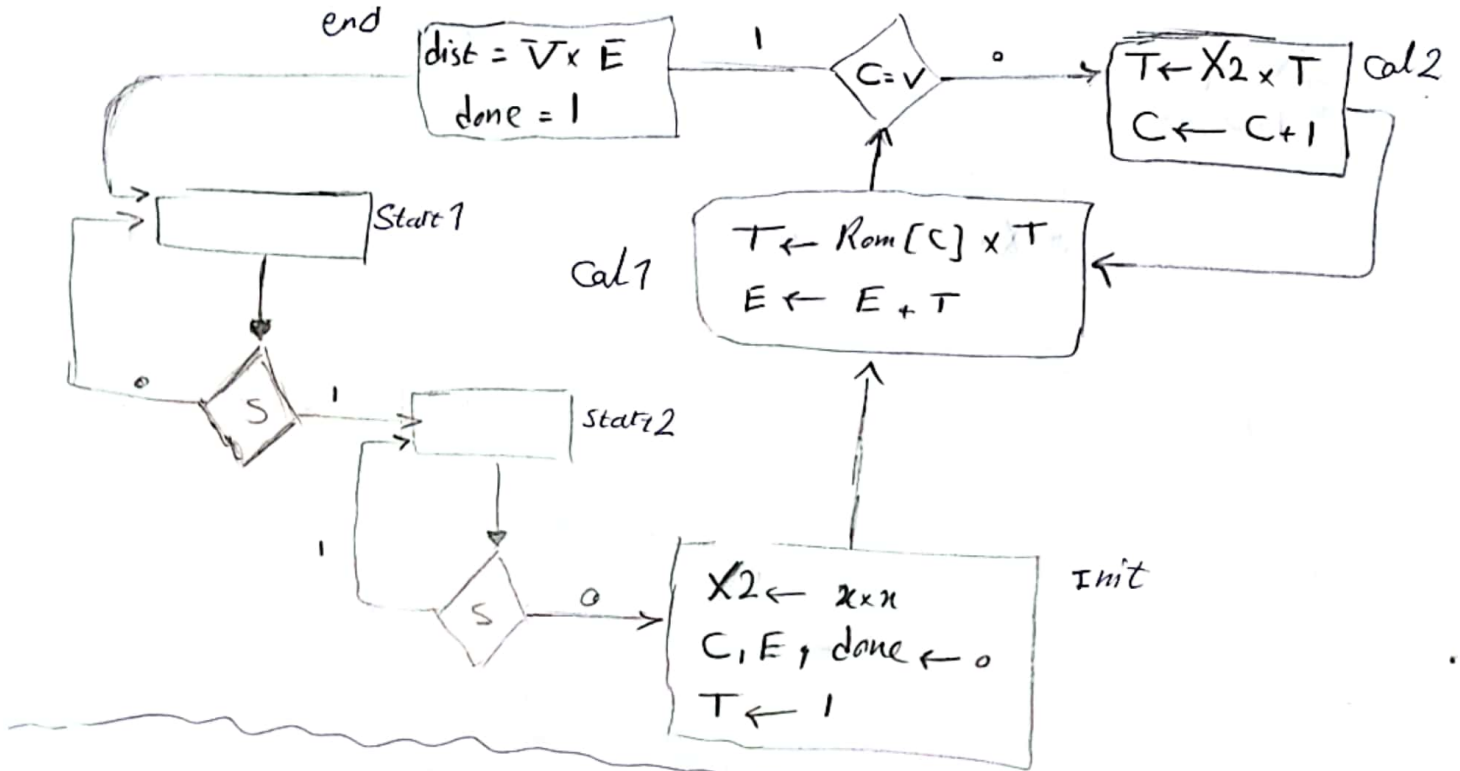 end
dist = V × E
done = 1
1
C=V
0
T ← X2 × T
C ← C+1
Cal2
Start1
Cal1
T ← Rom[C] × T
E ← E + T
S
0
1
Start2
S
1
0
Init
X2 ← x×x
C, E, done ← 0
T ← 1